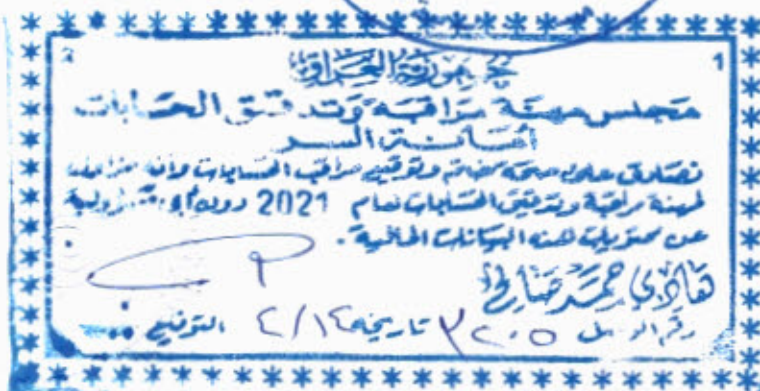 جمهورية العراق
مجلس مهنة مراقبة وتدقيق الحسابات
أمانة السر
نصادق على صحة ختم وتوقيع مراقب الحسابات وأنه مزاول
لمهنة مراقبة وتدقيق الحسابات لعام 2021 دون أية مسؤولية
عن محتويات هذه البيانات المالية.
هادي حمد صالح
رقم الوصل ٣٢٠٥ تاريخه ٢/١٤ التوقيع